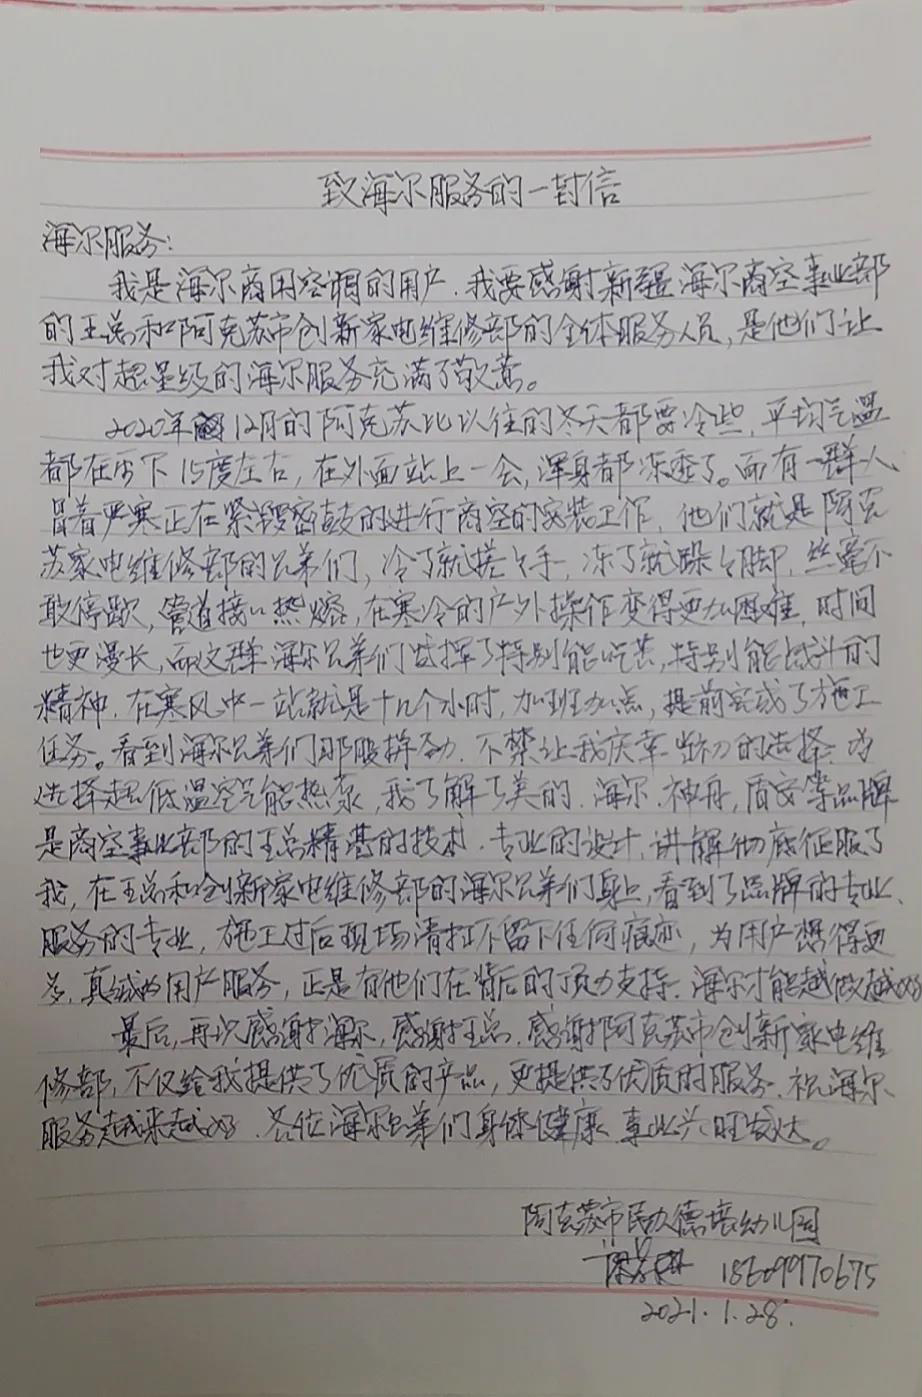 致海尔服务的一封信
海尔服务:
我是海尔商用空调的用户.我要感谢新疆海尔商空事业部
的王总和阿克苏市创新家电维修部的全体服务人员,是他们让
我对超星级的海尔服务充满了敬意。
2020年12月的阿克苏比以往的冬天都要冷些,平均气温
都在零下15度左右,在外面站上一会,浑身都冻透了。而有一群人
冒着严寒正在紧锣密鼓的进行商空的安装工作,他们就是阿克
苏家电维修部的兄弟们,冷了就搓搓手,冻了就跺跺脚,丝毫不
敢停歇,管道接口热熔,在寒冷的户外操作变得更加困难,时间
也更漫长,而这群海尔兄弟们发挥了特别能吃苦,特别能战斗的
精神.在寒风中一站就是十几个小时,加班加点,提前完成了施工
任务。看到海尔兄弟们那股拼劲,不禁让我庆幸当初的选择.为
选择超低温空气能热泵,我了解了美的.海尔.神舟,盾安等品牌
是商空事业部的王总精湛的技术.专业的设计,讲解彻底征服了
我,在王总和创新家电维修部的海尔兄弟们身上,看到了品牌的专业、
服务的专业,施工过后现场清扫不留下任何痕迹,为用户想得更
多,真诚为用户服务,正是有他们在背后的顶力支持.海尔才能越做越好
最后,再次感谢海尔,感谢王总.感谢阿克苏市创新家电维
修部,不仅给我提供了优质的产品,更提供了优质的服务.祝海尔
服务越来越好.各位海尔兄弟们身体健康.事业兴旺发达。
阿克苏市民办德培幼儿园
18609970675
2021.1.28.